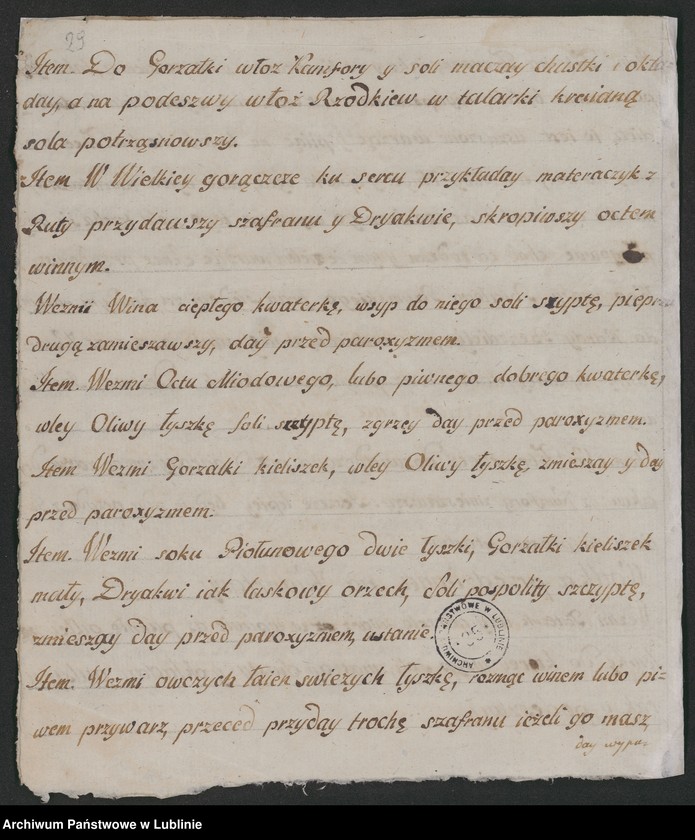 29
Item. Do Gorzałki włoz Kamfory y soli maczay chustki i okła
day, a na podeszwy włoż Rzodkiew w talarki kreianą
sola potrząsnowszy.
Item W Wielkiey gorączce ku sercu przykładay materaczyk z
Ruty przydawszy szafranu y Dryakwie, skropiwszy octem
winnym.
Wezmii Wina ciepłego kwaterkę, wsyp do niego soli szyptę, piepr
drugą zamieszawszy, day przed paroxyzmem.
Item. Wezmi Octu Miodowego, lubo piwnego dobrego kwaterkę,
wley Oliwy łyszkę Soli szyptę, zgrzey day przed paroxyzmem.
Item Wezmi Gorzalki kieliszek, wley Oliwy łyszkę, zmieszay y day
przed paroxyzmem.
Item. Wezmi soku Piołunowego dwie łyszki, Gorzałki kieliszek
mały, Dryakwi iak laskowy orzech, Soli pospolity szczyptę,
zmieszay day przed paroxyzmem, ustanie.
ARCHIWUM PAŃSTWOWE W LUBLINIE
Item. Wezmi owczych łaien swieżych łyszkę, rozmąc winem lubo pi=
wem przywarz, przeced przyday trochę szafranu ieżeli go masz,
day wypić
Archiwum Państwowe w Lublinie